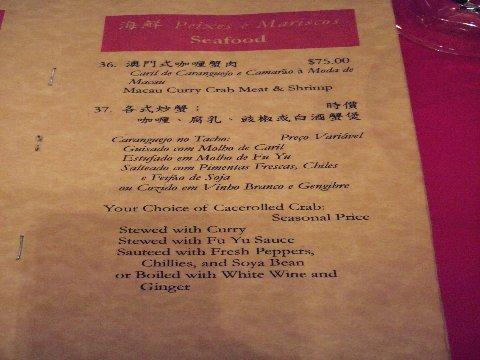 海鮮 Peixes e Mariscos
Seafood
36. 澳門式咖喱蟹肉 $75.00
Caril de Caranguejo e Camarão à Moda de
Macau
Macau Curry Crab Meat & Shrimp
37. 各式炒蟹： 時價
咖喱、腐乳、豉椒或白酒蟹煲
Caranguejo no Tacho: Preço Variável
Guisado com Molho de Caril
Estufado em Molho de Fu Yu
Salteado com Pimentas Frescas, Chiles
e Feifão de Soja
ou Cozido em Vinho Branco e Gengibre
Your Choice of Cacerolled Crab:
Seasonal Price
Stewed with Curry
Stewed with Fu Yu Sauce
Sauteed with Fresh Peppers,
Chillies, and Soya Bean
or Boiled with White Wine and
Ginger